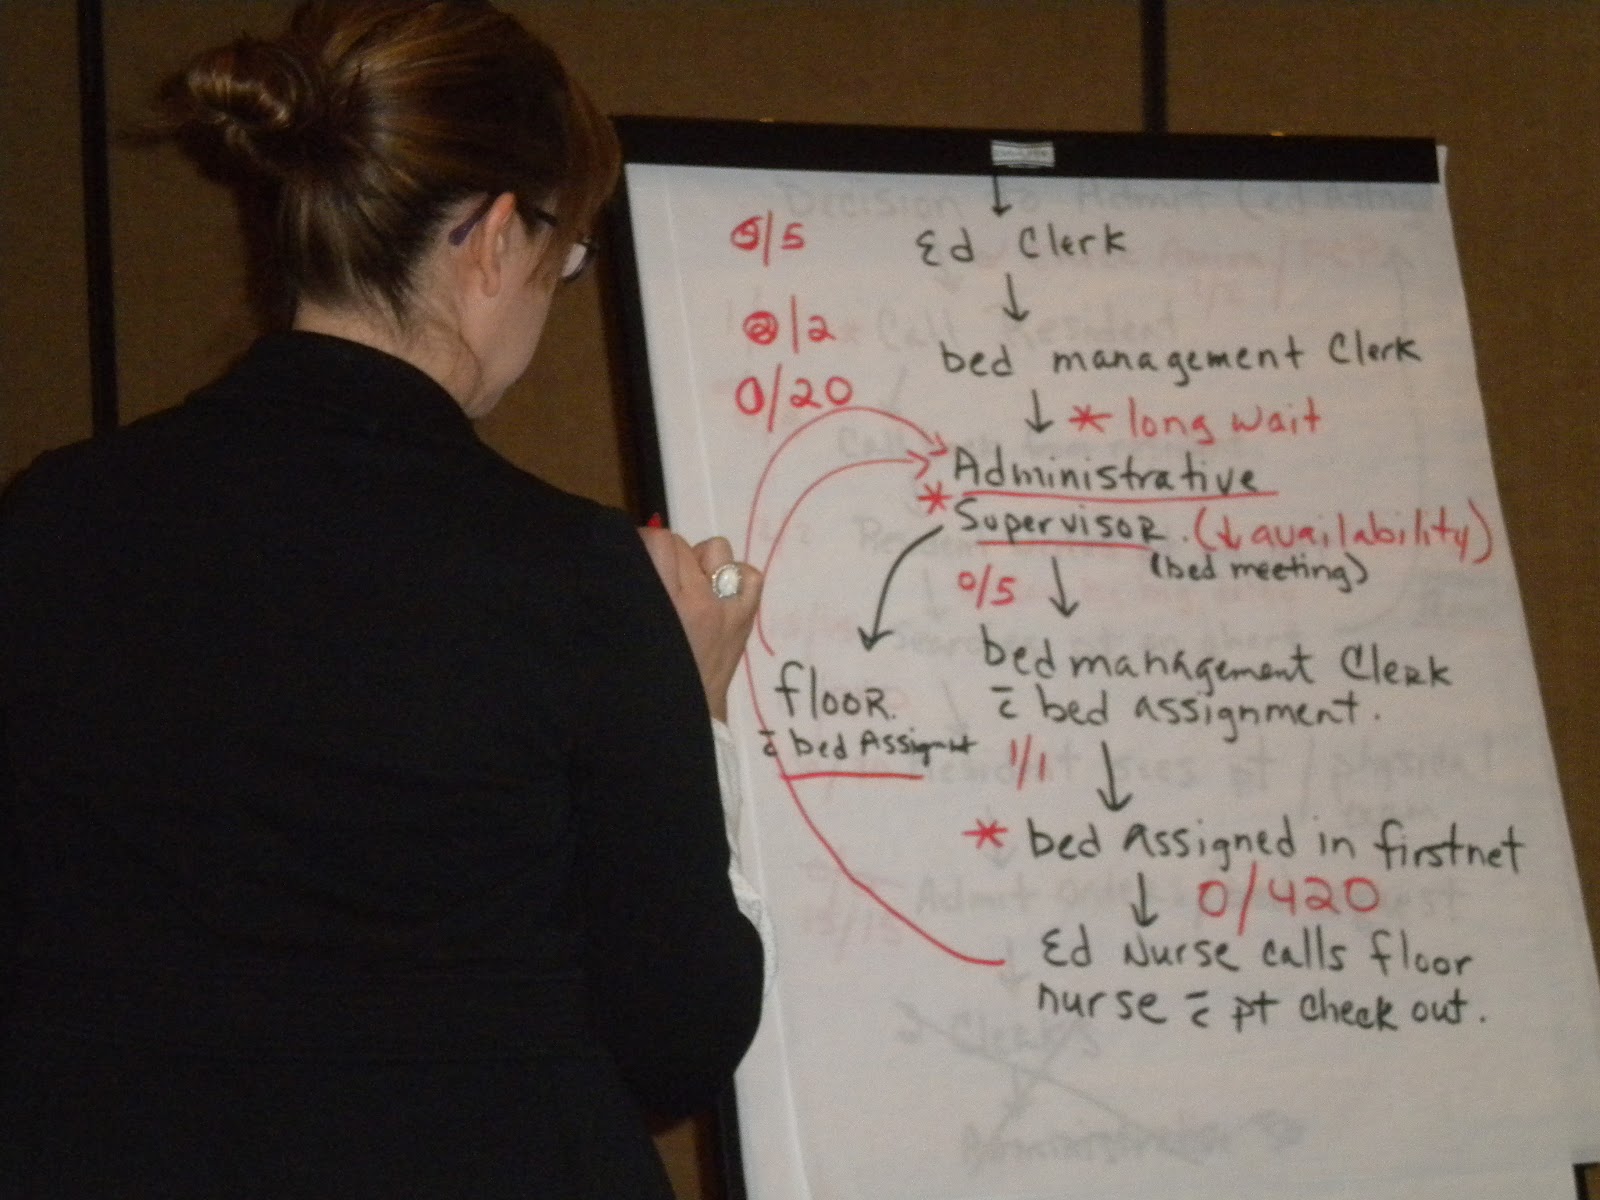 5/5
Ed Clerk
2/2
bed management Clerk
0/20
* long wait
Administrative
* Supervisor. (↓ availability)
(bed meeting)
0/5
bed management Clerk
c̄ bed assignment.
floor.
c̄ bed Assignt
1/1
* bed assigned in firstnet
0/420
Ed Nurse calls floor
nurse c̄ pt check out.
Decision to Admit
Call Resident